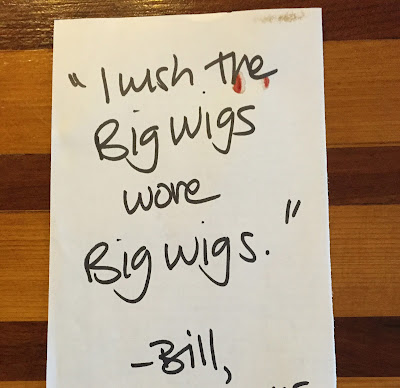 "I wish the
Big Wigs
wore
Big Wigs."
-Bill,